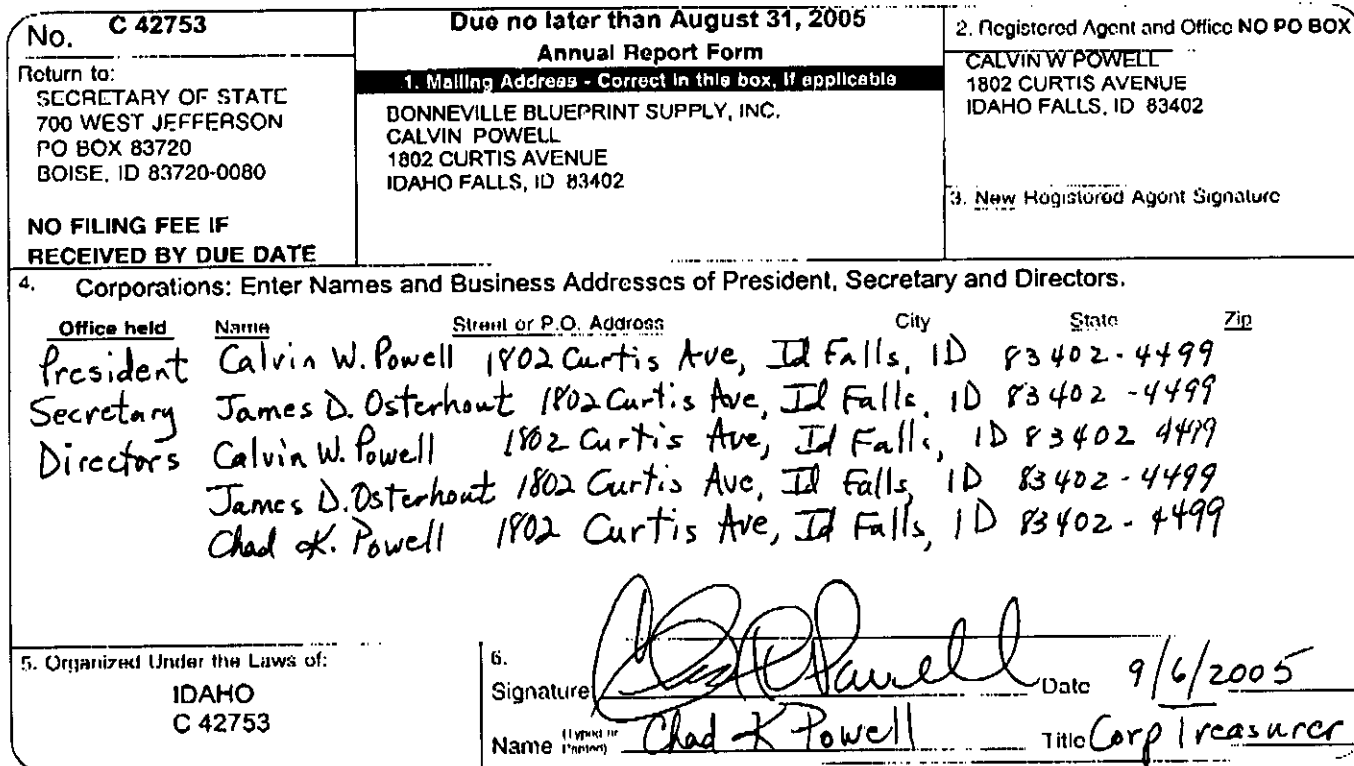 No. C 42753
Return to:
SECRETARY OF STATE
700 WEST JEFFERSON
PO BOX 83720
BOISE, ID 83720-0080
NO FILING FEE IF
RECEIVED BY DUE DATE
Due no later than August 31, 2005
Annual Report Form
1. Mailing Address - Correct in this box, if applicable
BONNEVILLE BLUEPRINT SUPPLY, INC.
CALVIN POWELL
1802 CURTIS AVENUE
IDAHO FALLS, ID 83402
2. Registered Agent and Office NO PO BOX
CALVIN W POWELL
1802 CURTIS AVENUE
IDAHO FALLS, ID 83402
3. New Registered Agent Signature
4. Corporations: Enter Names and Business Addresses of President, Secretary and Directors.
Office held Name Street or P.O. Address City State Zip
President Calvin W. Powell 1802 Curtis Ave, Id Falls, ID 83402-4499
Secretary James D. Osterhout 1802 Curtis Ave, Id Falls, ID 83402-4499
Directors Calvin W. Powell 1802 Curtis Ave, Id Falls, ID 83402 4499
James D. Osterhout 1802 Curtis Ave, Id Falls, ID 83402-4499
Chad K. Powell 1802 Curtis Ave, Id Falls, ID 83402-4499
5. Organized Under the Laws of:
IDAHO
C 42753
6.
Signature Chad K Powell Date 9/6/2005
Name (Typed or Printed) Chad K Powell Title Corp Treasurer